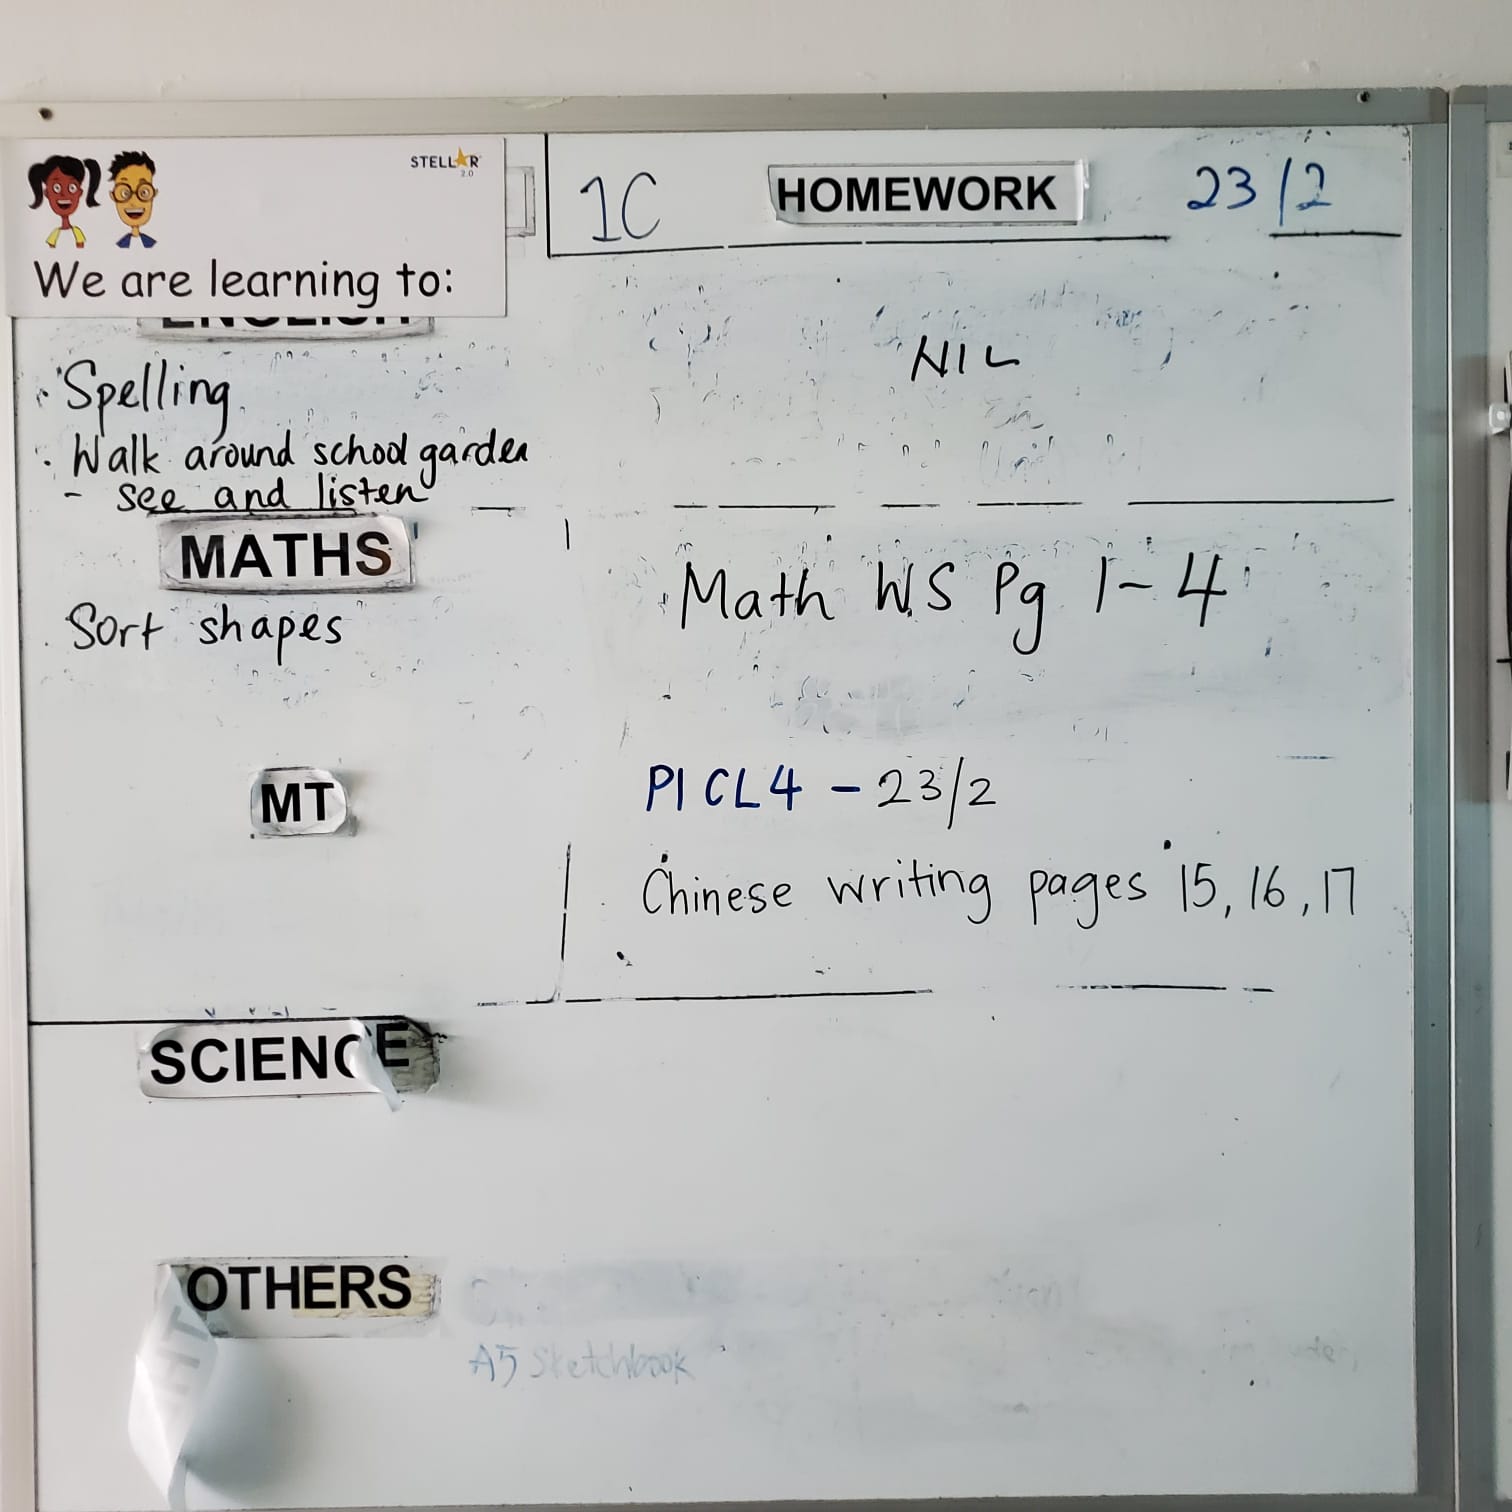 STELLAR
2.0
We are learning to:
1C
HOMEWORK
23/2
ENGLISH
Spelling
Walk around school garden
- see and listen
NIL
MATHS
Sort shapes
Math WS Pg 1-4
MT
P1 CL4 - 23/2
Chinese writing pages 15, 16, 17
SCIENCE
OTHERS
A5 Sketchbook